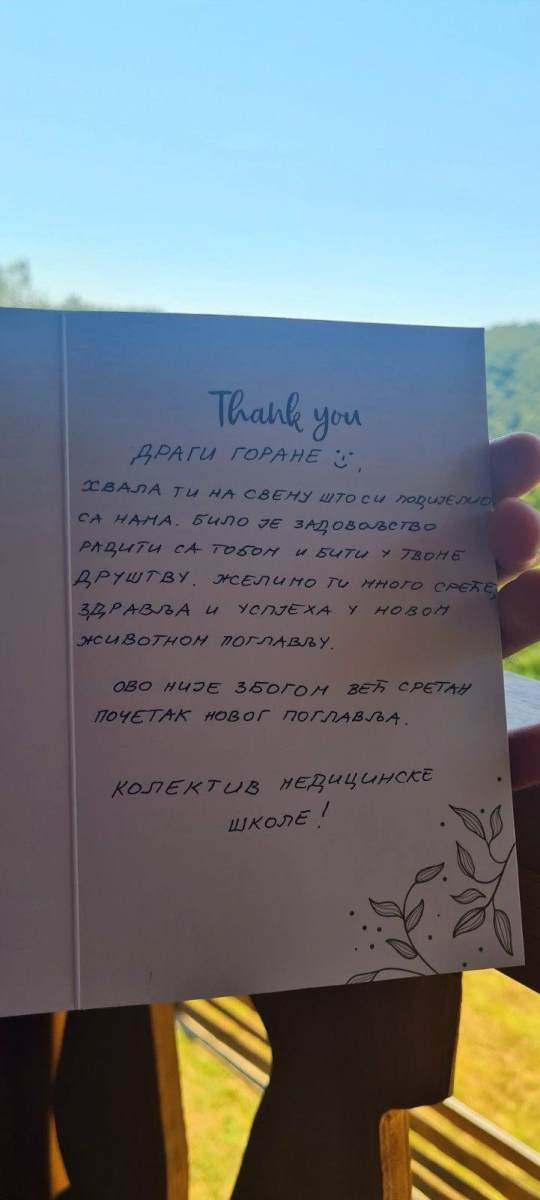 Thank you
ДРАГИ ГОРАНЕ :),
ХВАЛА ТИ НА СВЕМУ ШТО СИ ПОДИЈЕЛИО
СА НАМА. БИЛО ЈЕ ЗАДОВОЉСТВО
РАДИТИ СА ТОБОМ И БИТИ У ТВОМЕ
ДРУШТВУ. ЖЕЛИМО ТИ МНОГО СРЕЋЕ,
ЗДРАВЉА И УСПЈЕХА У НОВОМ
ЖИВОТНОМ ПОГЛАВЉУ.
ОВО НИЈЕ ЗБОГОМ ВЕЋ СРЕТАН
ПОЧЕТАК НОВОГ ПОГЛАВЉА.
КОЛЕКТИВ МЕДИЦИНСКЕ
ШКОЛЕ!